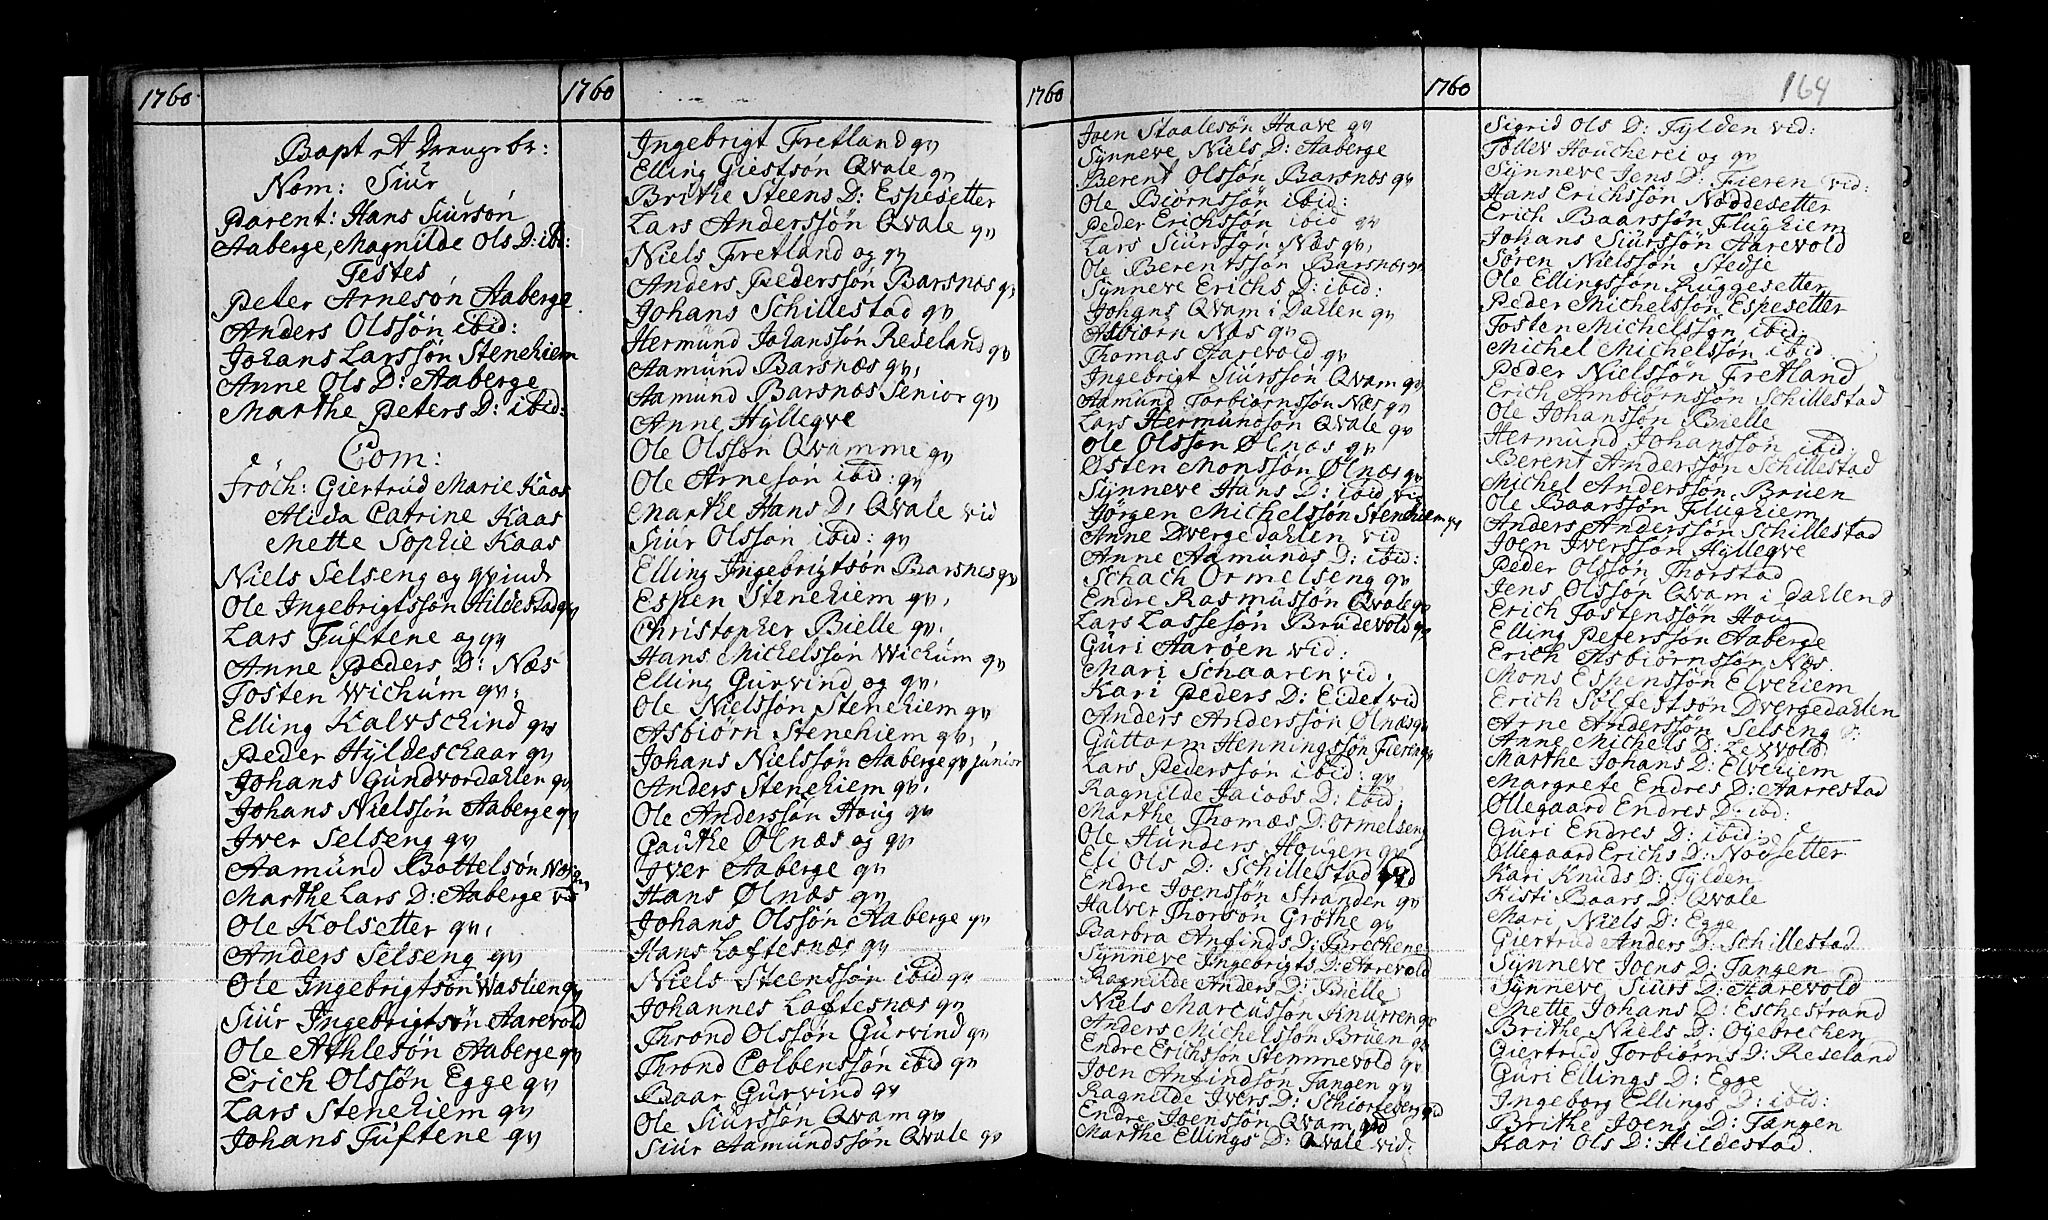 1760
Bapt et Drengebr:
Nom: Siur
Parent: Hans Siursøn
Aaberge, Magnilde Ols D: ibi:
Testes
Peter Arnesøn Aaberge
Anders Olssøn ibid:
Johans Larssøn Stenehiem
Anne Ols D: Aaberge
Marthe Peters D: ibid:
Com:
Fröch: Giertrud Marie Kaas
Alida Catrine Kaas
Mette Sophie Kaas
Niels Selseng og qvinde
Ole Ingebrigtssøn Hildestad qv
Lars Tuftene og qv
Anne Peders D: Næs
Tosten Wichum qv:
Elling Kalvschind qv
Peder Hyldeschaar qv
Johans Gundvordahlen qv
Johans Nielssøn Aaberge qv
Iver Selseng qv
Aamund Bottelsøn Næs qv
Marthe Lars D: Aaberge vid
Ole Kolsetter qv:
Anders Selseng qv
Ole Ingebrigtsøn Waslien qv
Siur Ingebrigtsøn Aarevold
Ole Athlesøn Aaberge qv
Erich Olssøn Egge qv
Lars Stenehiem qv
Johans Tuftene qv
1760
Ingebrigt Fretland qv
Elling Giestsøn Qvale qv
Brithe Steens D: Espesetter
Lars Anderssøn Qvale qv
Niels Fretland og qv
Anders Pederssøn Barsnæs qv
Johans Schillestad qv
Hermund Johanssøn Reseland qv
Aamund Barsnæs qv,
Aamund Barsnæs Senior qv
Anne Hyllegve
Ole Olssøn Qvamme qv
Ole Arnesøn ibid: qv
Marthe Hans D: Qvale vid
Siur Olsson ibid: qv
Elling Ingebrigtsøn Barsnes qv
Espen Stenehiem qv,
Christopher Bielle qv,
Hans Michelssøn Wichum qv
Elling Gurvind og qv,
Ole Nielssøn Stenehiem qv
Asbiørn Stenehiem qv,
Johans Nielssøn Aaberge qv junior
Anders Stenehiem qv,
Ole Anderssøn Houg qv
Gauthe Ølnæs og qv
Iver Aaberge qv
Hans Ølnæs qv
Johans Olssøn Aaberge qv
Hans Loftesnæs qv
Niels Steenssøn ibid qv
Johannes Loftesnæs qv
Thrond Olssøn Gurvind qv
Thrond Colbenssøn ibid qv
Baar Gurvind qv
Ole Siurssøn Qvam qv
Siur Aamundssøn Qvale qv
1760
Joen Staalesøn Haave qv
Synneve Niels D: Aaberge
Berent Olssøn Barsnæs qv
Ole Biørnssøn ibid:
Peder Erichssøn ibid qv
Lars Siurssøn Næs qv,
Ole Berentssøn Barsnæs qv
Synneve Erichs D: ibid:
Johans Qvam i Dahlen qv
Asbiørn Næs qv
Thomas Aarevold qv
Ingebrigt Siurssøn Qvam qv
Aamund Torbiørnssøn Næs qv
Lars Hermundsøn Qvale qv
Ole Olsson Ølnæs qv,
Østen Monssøn Ølnæs qv
Synneve Hans D: ibid vid
Jørgen Michelssøn Stenehiem qv
Anne Dvergedahlen vid
Anne Aamunds D: ibid:
Schach Ormelseng qv
Endre Rasmussøn Qvale qv
Lars Lassesøn Brudevold qv
Guri Aarøen vid:
Mari Schaaren vid,
Kari Peders D: Eidet vid
Anders Anderssøn Ølnæs qv
Guttorm Henningssøn Fieren qv
Lars Pederssøn ibid: qv
Ragnilde Jacobs D: ibid,
Marthe Thomæs D: Ormelseng
Ole Hunders Hougen qv
Eli Ols D: Schillestad vid
Endre Joenssøn Stranden qv
Halver Thorson Grøthe qv
Barbra Anfinds D: Brechene
Synneve Ingebrigts D: Aarevold
Ragnilde Anders D: Bielle
Niels Marcussøn Knurren qv
Anders Michelssøn Bruen qv
Endre Erichssøn Stemmevold qv
Joen Anfindsøn Tangen qv
Ragnilde Ivers D: Schiorleberg vid
Endre Joenssøn Qvam qv
Marthe Ellings D: Qvale vid:
1760
164
Sigrid Ols D: Fylden vid:
Tollev Houcherei og qv
Synneve Jens D: Fieren vid:
Hans Erichssøn Nøddesetter
Erich Baarssøn Flughiem
Johans Siurssøn Aarevold
Søren Nielssøn Stedje
Ole Ellingssøn Ruggesetter
Peder Michelssøn Espesetter
Tosten Michelssøn ibid:
Michel Michelssøn ibid
Peder Nielssøn Fretland
Erich Ambiørnssøn Schillestad
Ole Johanssøn Bielle
Hermund Johanssøn ibid:
Berent Anderssøn Schillestad
Michel Anderssøn Bruen
Ole Baarssøn Flughiem
Anders Anderssøn Schillestad
Joen Iverssøn Hyllegve
Peder Olssøn Thorstad
Jens Olsson Qvam i Dahlen
Erich Tostenssøn Houg
Elling Peterssøn Aaberge
Erich Asbiørnssøn Næs
Mons Espenssøn Elvehiem
Erich Sølfestsøn Dvergedahlen
Arne Anderssøn Selseng
Anne Michels D: Lexvold
Marthe Johans D: Elvehiem
Margrete Endres D: Aarrestad
Ollegaard Endres D: ibd:
Guri Endres D: ibid:
Ollegaard Erichs D: Nødsetter
Kari Knuds D: Fylden
Kisti Baars D: Qvale
Mari Niels D: Egge
Giertrud Anders D: Schillestad
Synneve Joens D: Tangen
Synneve Siurs D: Aarevold
Mette Johans D: Eschestrand
Brithe Niels D: Ogebrechen
Giertrud Torbiørns D: Reseland
Guri Ellings D: Egge
Ingeborg Ellings D: ibid:
Brithe Joens D: Tangen
Kari Ols D: Hildestad.